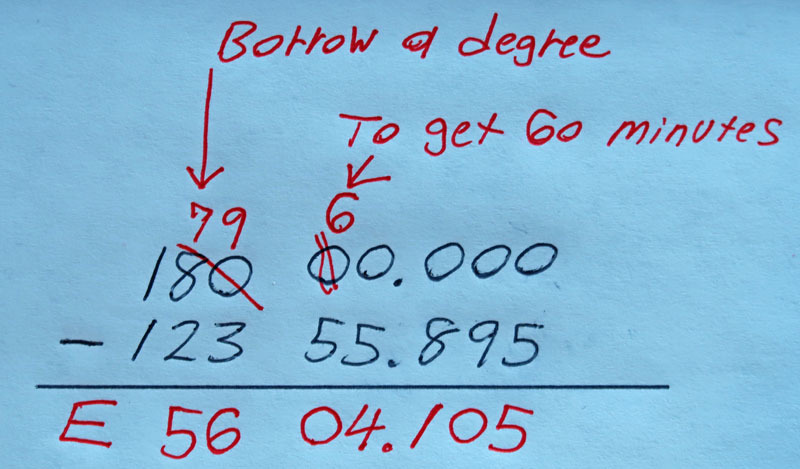 Borrow a degree
To get 60 minutes
79 6
180 00.000
- 123 55.895
E 56 04.105